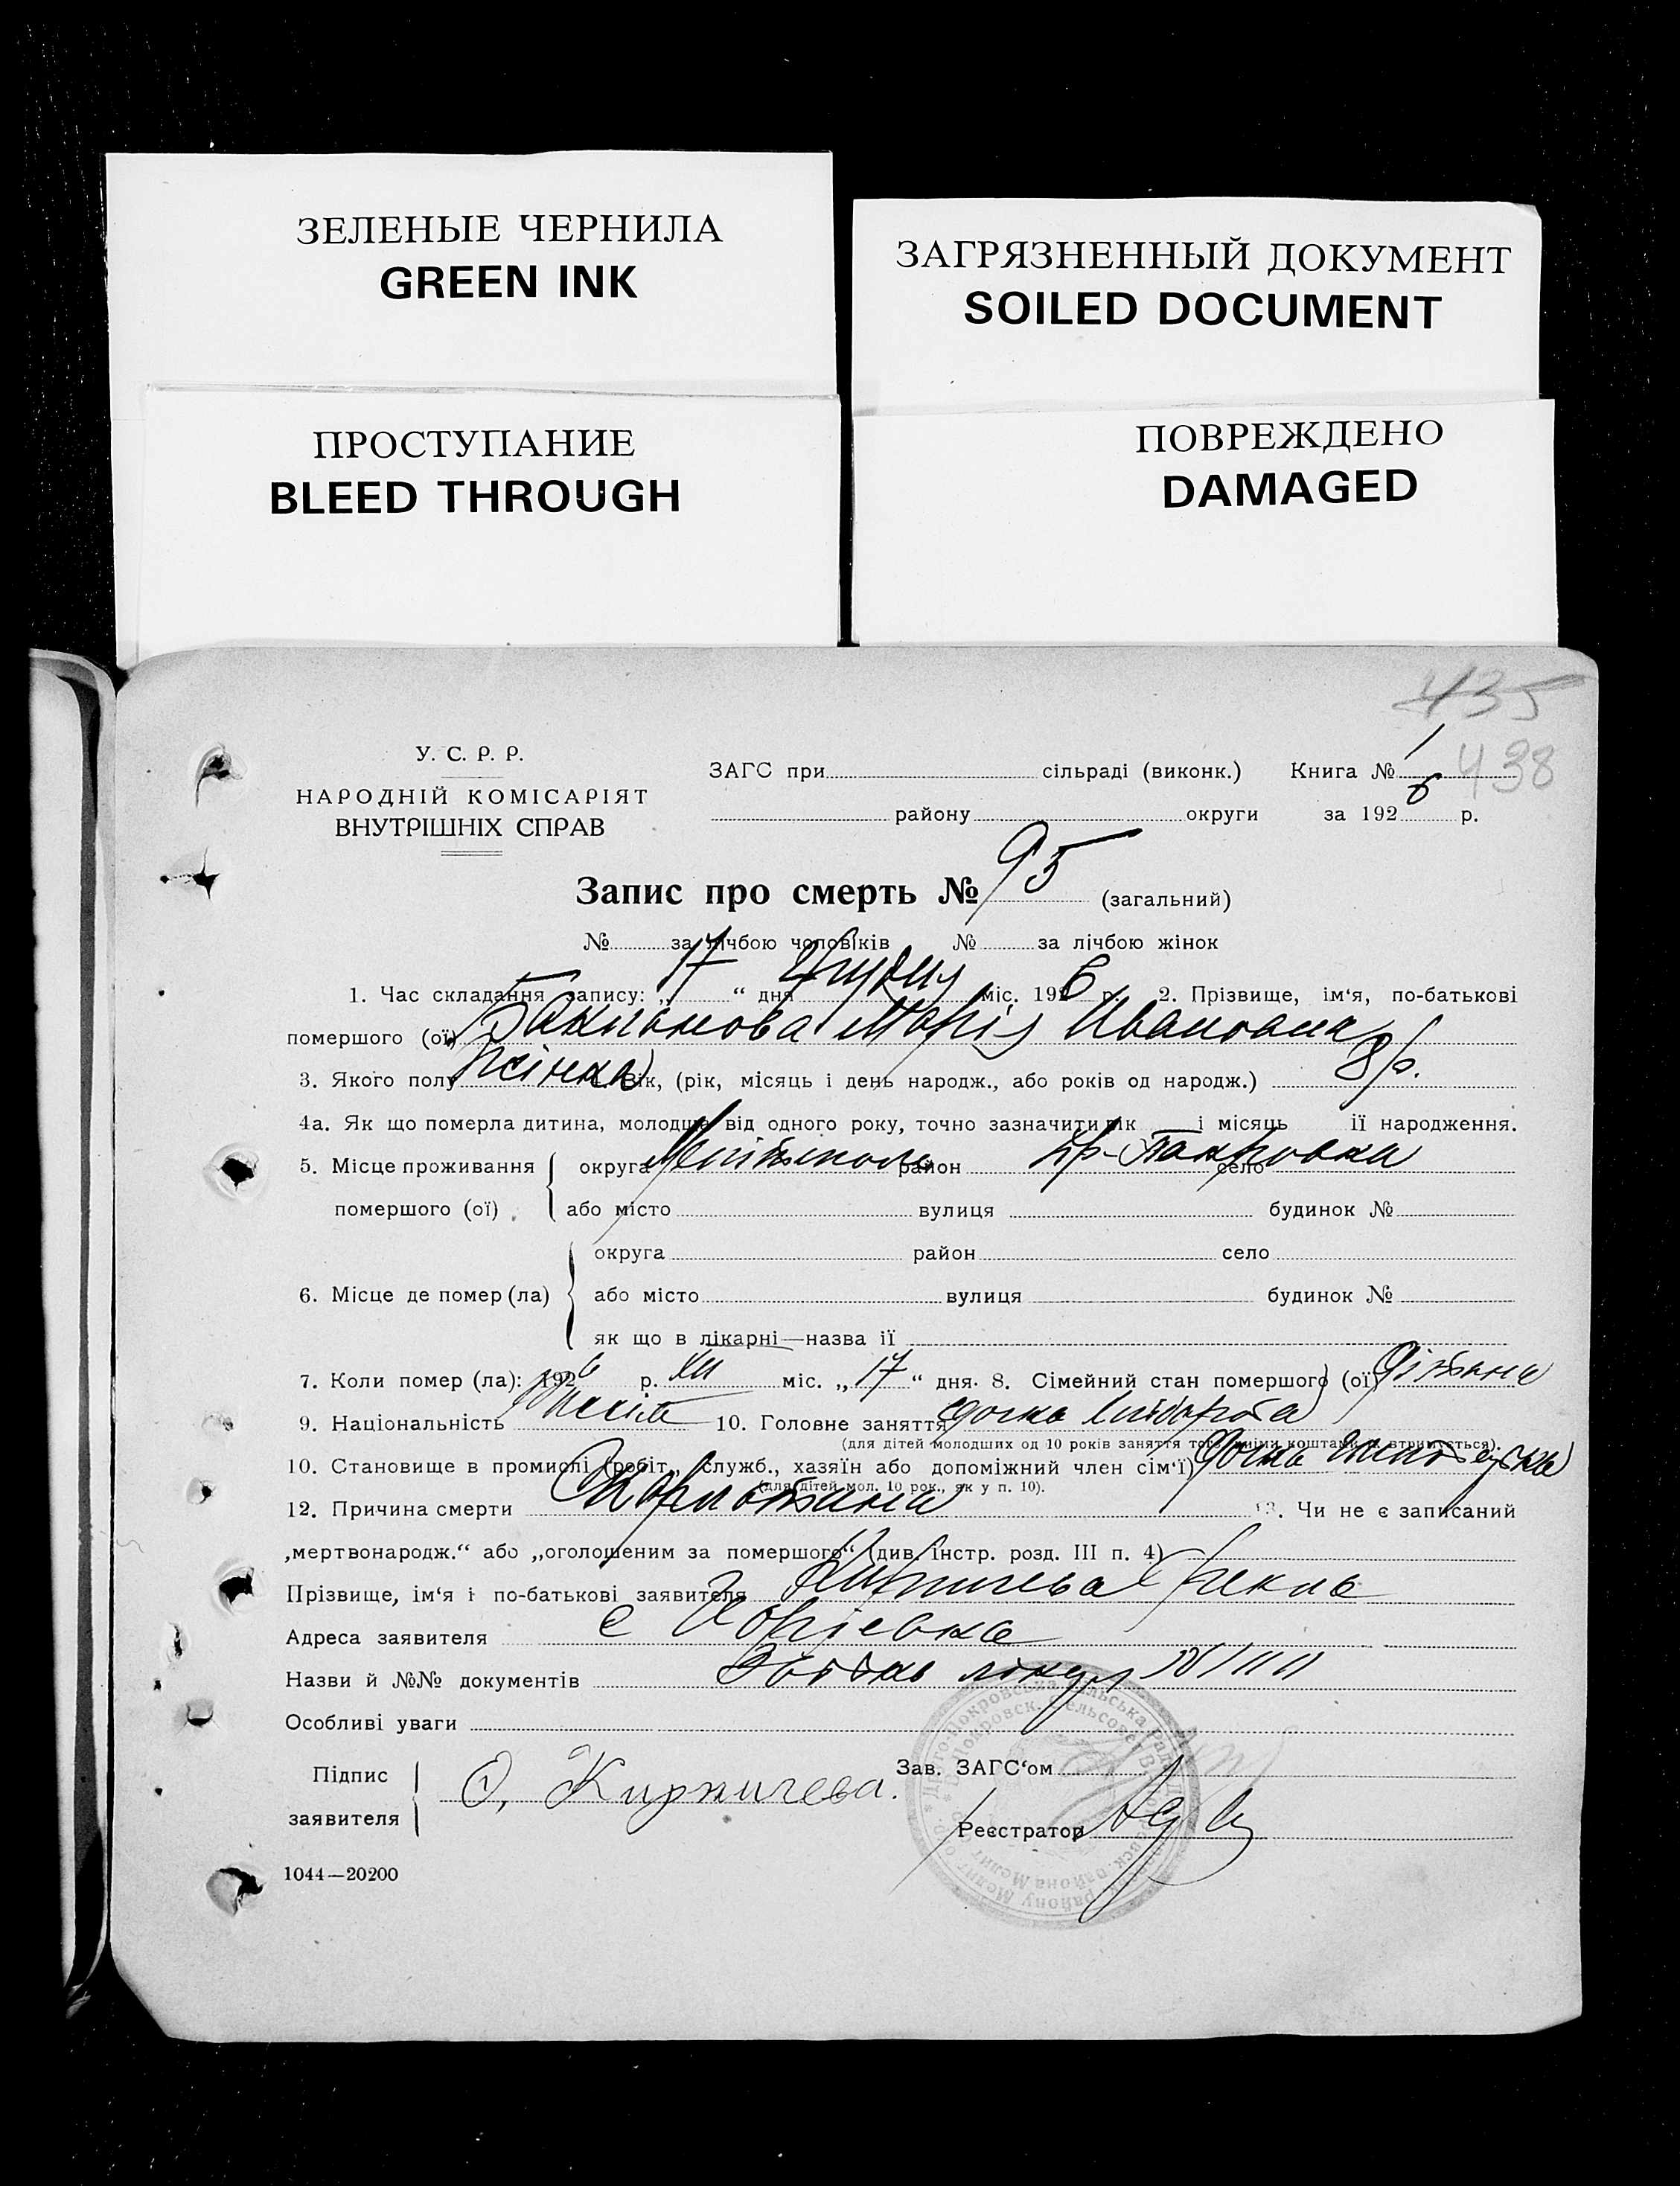 ЗЕЛЕНЫЕ ЧЕРНИЛА
GREEN INK
ЗАГРЯЗНЕННЫЙ ДОКУМЕНТ
SOILED DOCUMENT
ПРОСТУПАНИЕ
BLEED THROUGH
ПОВРЕЖДЕНО
DAMAGED
435
438
У. С. Р. Р.
НАРОДНІЙ КОМІСАРІЯТ
ВНУТРІШНІХ СПРАВ
ЗАГС при сільраді (виконк.) Книга № 1
району округи за 1926 р.
Запис про смерть № 95 (загальний)
№ за лічбою чоловіків № за лічбою жінок
1. Час складання запису: „17“ дня Грудня міс. 1926 р. 2. Прізвище, ім‘я, по-батькові
помершого (ої) Марія Ивановна
3. Якого полу Жінка 4. Вік, (рік, місяць і день народж., або років од народж.) 8 р.
4а. Як що померла дитина, молодша від одного року, точно зазначити рік і місяць її народження.
5. Місце проживання округа район село
помершого (ої) або місто вулиця будинок №
округа район село
6. Місце де помер (ла) або місто вулиця будинок №
як що в лікарні—назва її
7. Коли помер (ла): 1926 р. XII міс. „17“ дня. 8. Сімейний стан помершого (ої) дітина
9. Національність 10. Головне заняття дочка хлібороба
(для дітей молодших од 10 років заняття того, чиїми коштами ж втримується).
10. Становище в промислі (робіт., служб., хазяїн або допоміжний член сім‘ї) дочка
(для дітей мол. 10 рок., як у п. 10).
12. Причина смерти Скарлатина 13. Чи не є записаний
„мертвонародж.“ або „оголошеним за помершого“ (див. Інстр. розд. III п. 4)
Прізвище, ім‘я і по-батькові заявителя Кирпичева
Адреса заявителя с
Назви й №№ документів
Особливі уваги
Підпис
заявителя Кирпичева.
Зав. ЗАГС‘ом
Реєстратор
1044—20200